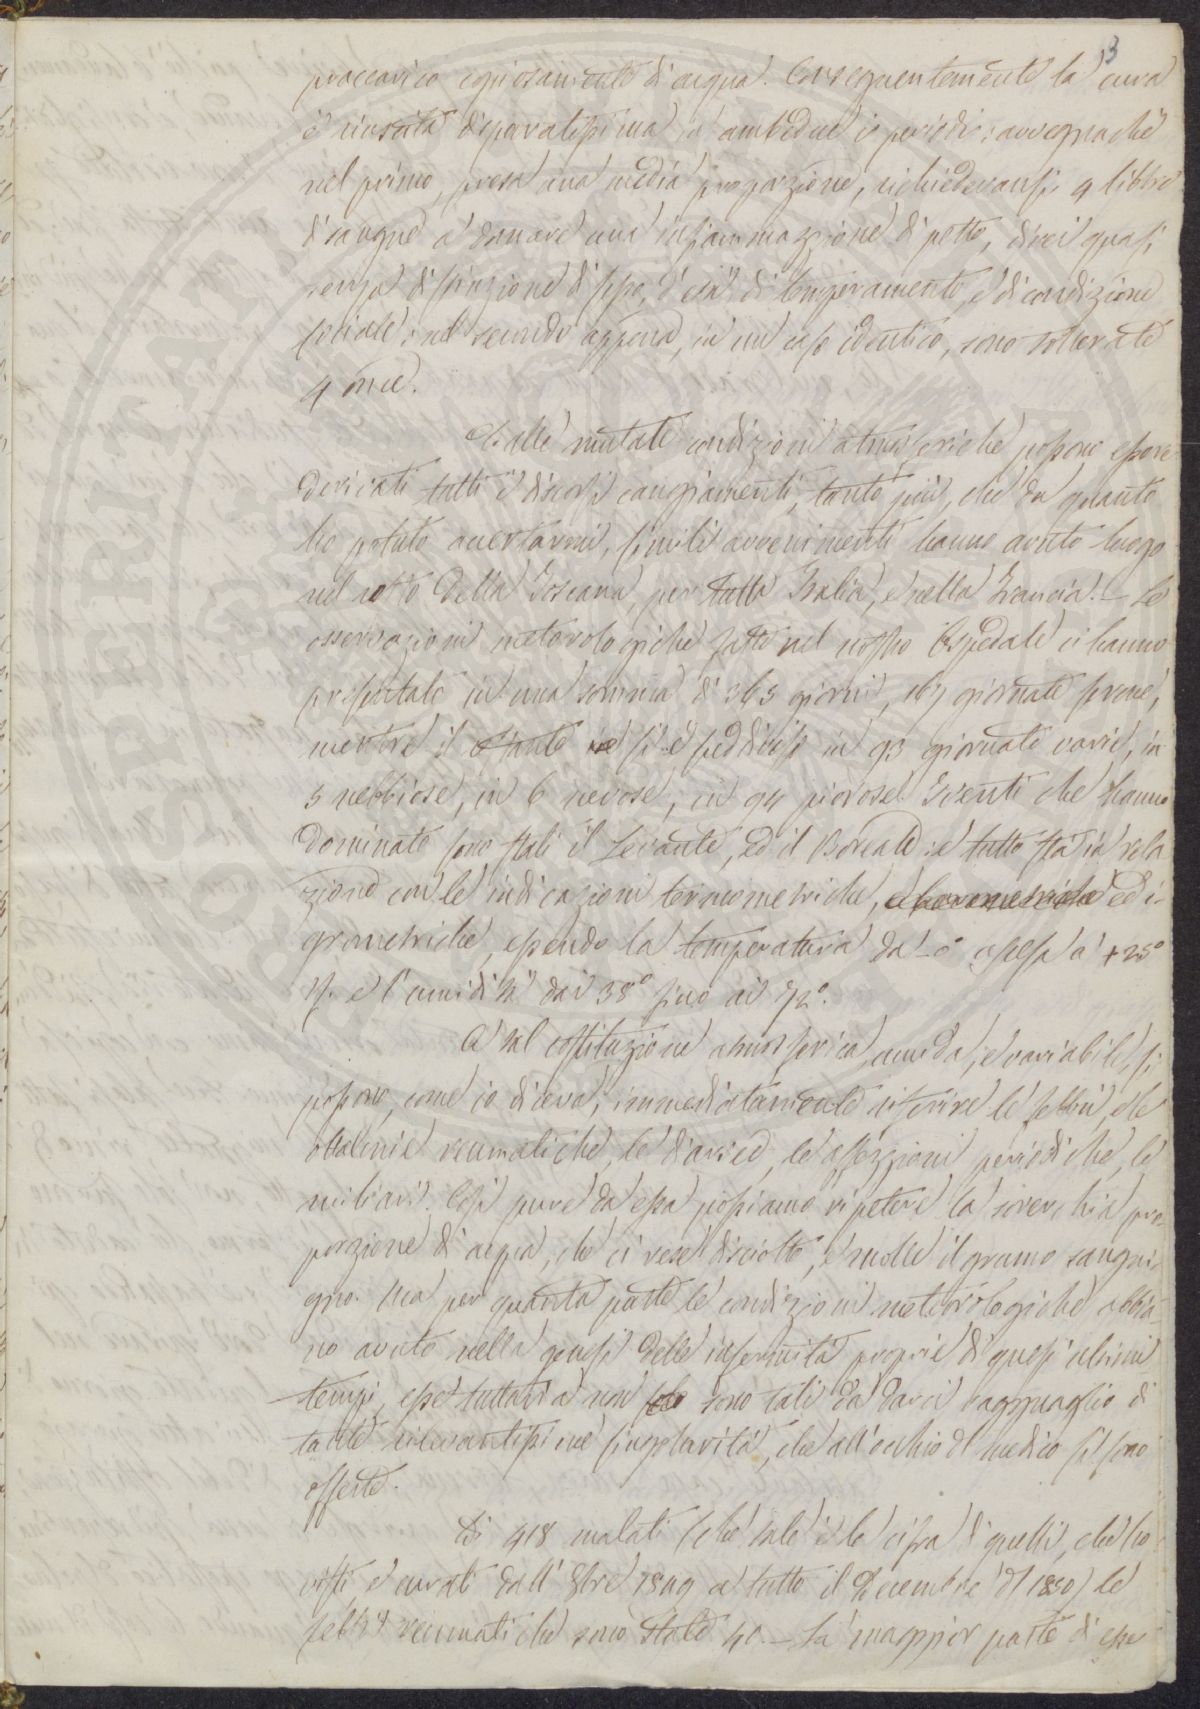 3
praccarico copiosamente di acqua. Conseguentemente la cura
è riuscita disparatissima in ambedue i periodi: avvegnachè
nel primo, presa una media proporzione, richiedevansi 4 libbre
di sangue a domare una infiammazione di petto, direi quasi
senza distinzione di sesso, d'età di temperamento, e di condizione
sociale: nel secondo appena, in un caso identico, sono sottratte
4 once.
Dalle mutate condizioni atmosferiche possono essere
derivati tutti i discorsi cangiamenti, tanto più, che da quanto
ho potuto accertarmi, simili avvenimenti hanno avuto luogo
nel resto della Toscana, per tutta Italia, e nella Francia. – Le
osservazioni meteorologiche fatte nel nostro Ospedale ci hanno
presentato in una somma di 365 giorni, 167 giornate serene,
mentre il restante si è suddiviso in 93 giornate varie, in
5 nebbiose, in 6 nevose, in 94 piovose. I venti che hanno
dominato sono stati il Levante, ed il Boreale: e tutto sta in rela
zione con le indicazioni termometriche, e barometriche ed i-
grometriche, essendo la temperatura da –6° ascesa a +25°
R. e l'umidità dai 38° fino ai 72°.
A tal costituzione atmosferica umida, e variabile, si
possono, come io diceva, immediatamente riferire le febbri, e le
ottalmie reumatiche, le diarree, le affezzioni periodiche, le
miliari. Così pure da essa possiamo ripetere la soverchia pro-
porzione di acqua, che ci rese disciolto, e molle il grumo sangui-
gno. Ma per quanta parte le condizioni meteorologiche abbia-
no avuto nella genesi delle infermità proprie di quest'ultimi
tempi, esse tuttavia non solo sono tali da darci ragguaglio di
tante rilevantissime singolarità, che all'occhio del medico si sono
offerte.
Di 418 malati (chè tale è la cifra di quelli, che ho
visti e curati dall'8bre 1849 a tutto il Decembre del 1850) le
febbri reumatiche sono state 40. – La maggior parte di esse